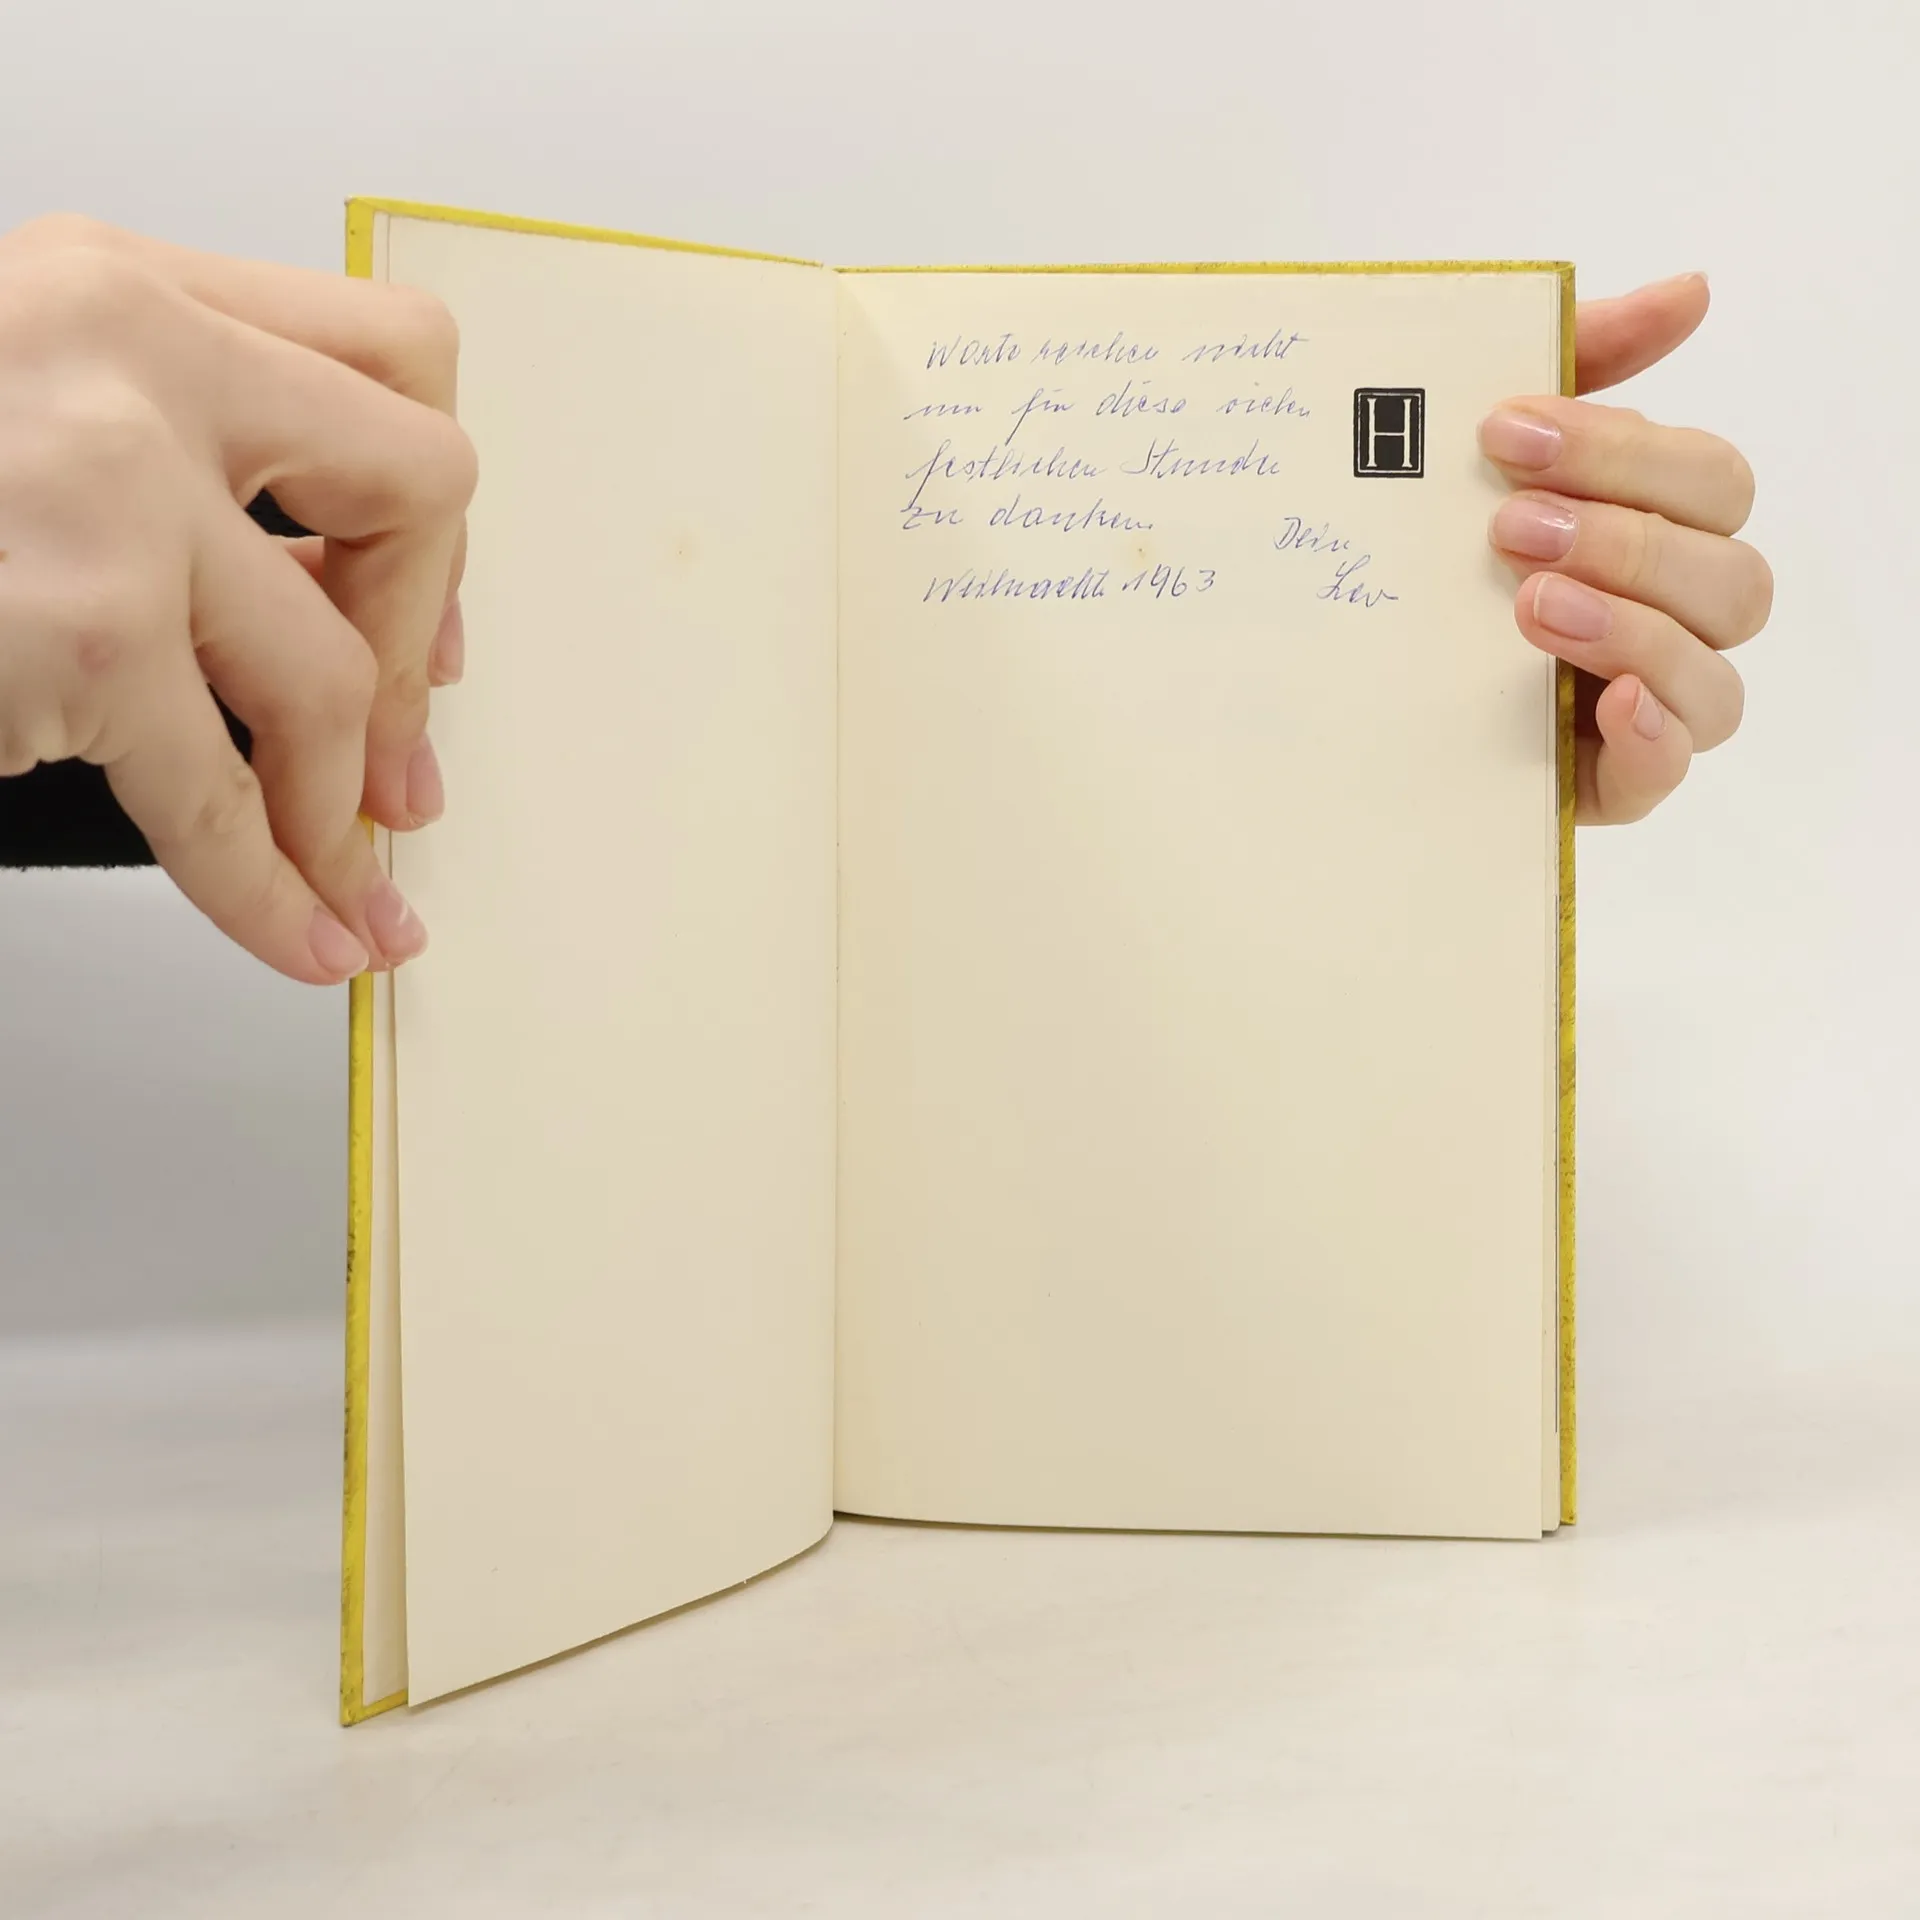 Worte reichen nicht
um für diese vielen
festlichen Stunden
zu danken.
Dein
Weihnacht 1963
Lev
H